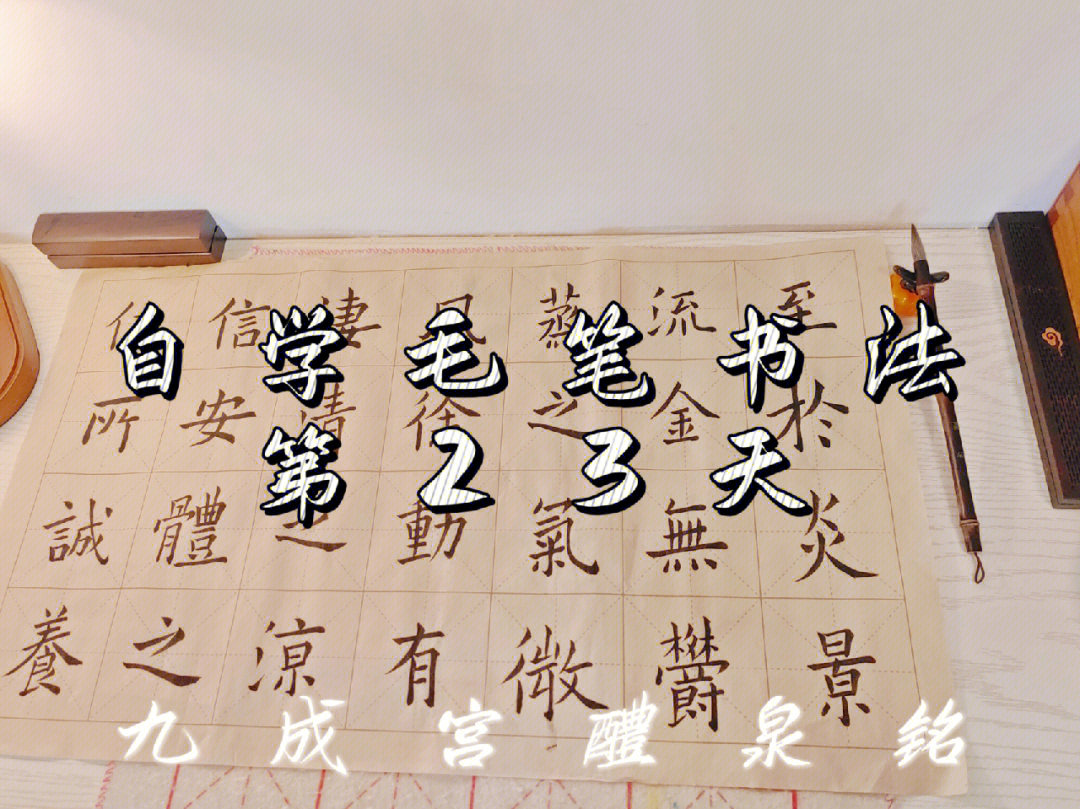 自学毛笔书法
第23天
至於炎景
流金無鬱
蒸之氣微
風徐動有
淒清之涼
信安體之
所誠養
九成宫醴泉铭